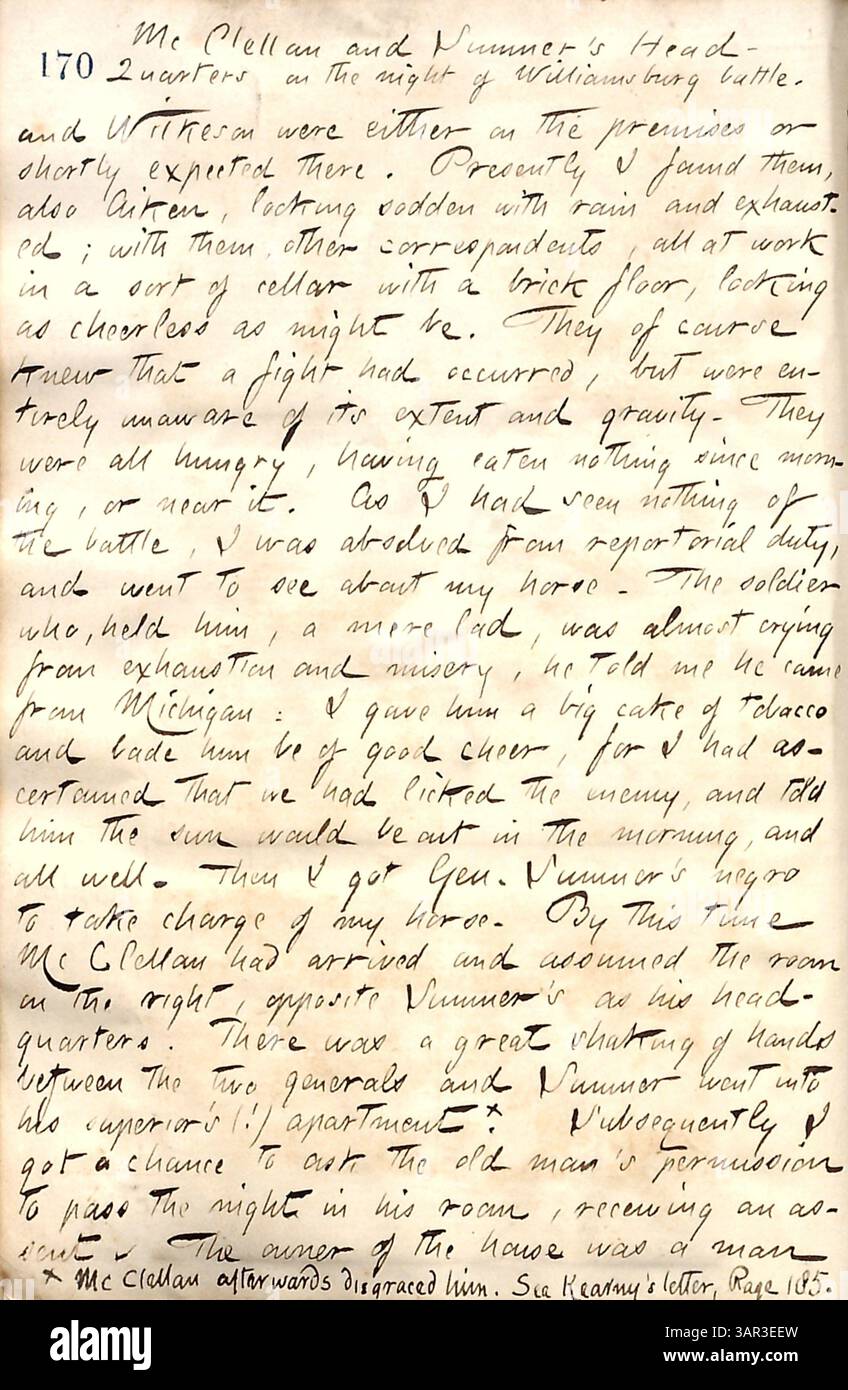 170
Mc Clellan and Sumner's Head-
Quarters on the night of Williamsburg battle.
and Wilkeson were either on the premises or
shortly expected there. Presently I found them,
also Aiken, looking sodden with rain and exhaust-
ed; with them, other correspondents, all at work
in a sort of cellar with a brick floor, looking
as cheerless as might be. They of course
knew that a fight had occurred, but were en-
tirely unaware of its extent and gravity. They
were all hungry, having eaten nothing since morn-
ing, or near it. As I had seen nothing of
the battle, I was absolved from reportorial duty,
and went to see about my horse. The soldier
who, held him, a mere lad, was almost crying
from exhaustion and misery, he told me he came
from Michigan: I gave him a big cake of tobacco
and bade him be of good cheer, for I had as-
certained that we had licked the enemy, and told
him the sun would be out in the morning, and
all well. Then I got Gen. Sumner's negro
to take charge of my horse. By this time
Mc Clellan had arrived and assumed the room
on the right, opposite Sumner's as his head-
quarters. There was a great shaking of hands
between the two generals and Sumner went into
his superior's (!) apartment x. Subsequently I
got a chance to ask the old man's permission
to pass the night in his room, receiving an as-
sent. The owner of the house was a man
x Mc Clellan afterwards disgraced him. See Kearny's letter, Page 185.
alamy
Image ID: 3AR3EEW
www.alamy.com